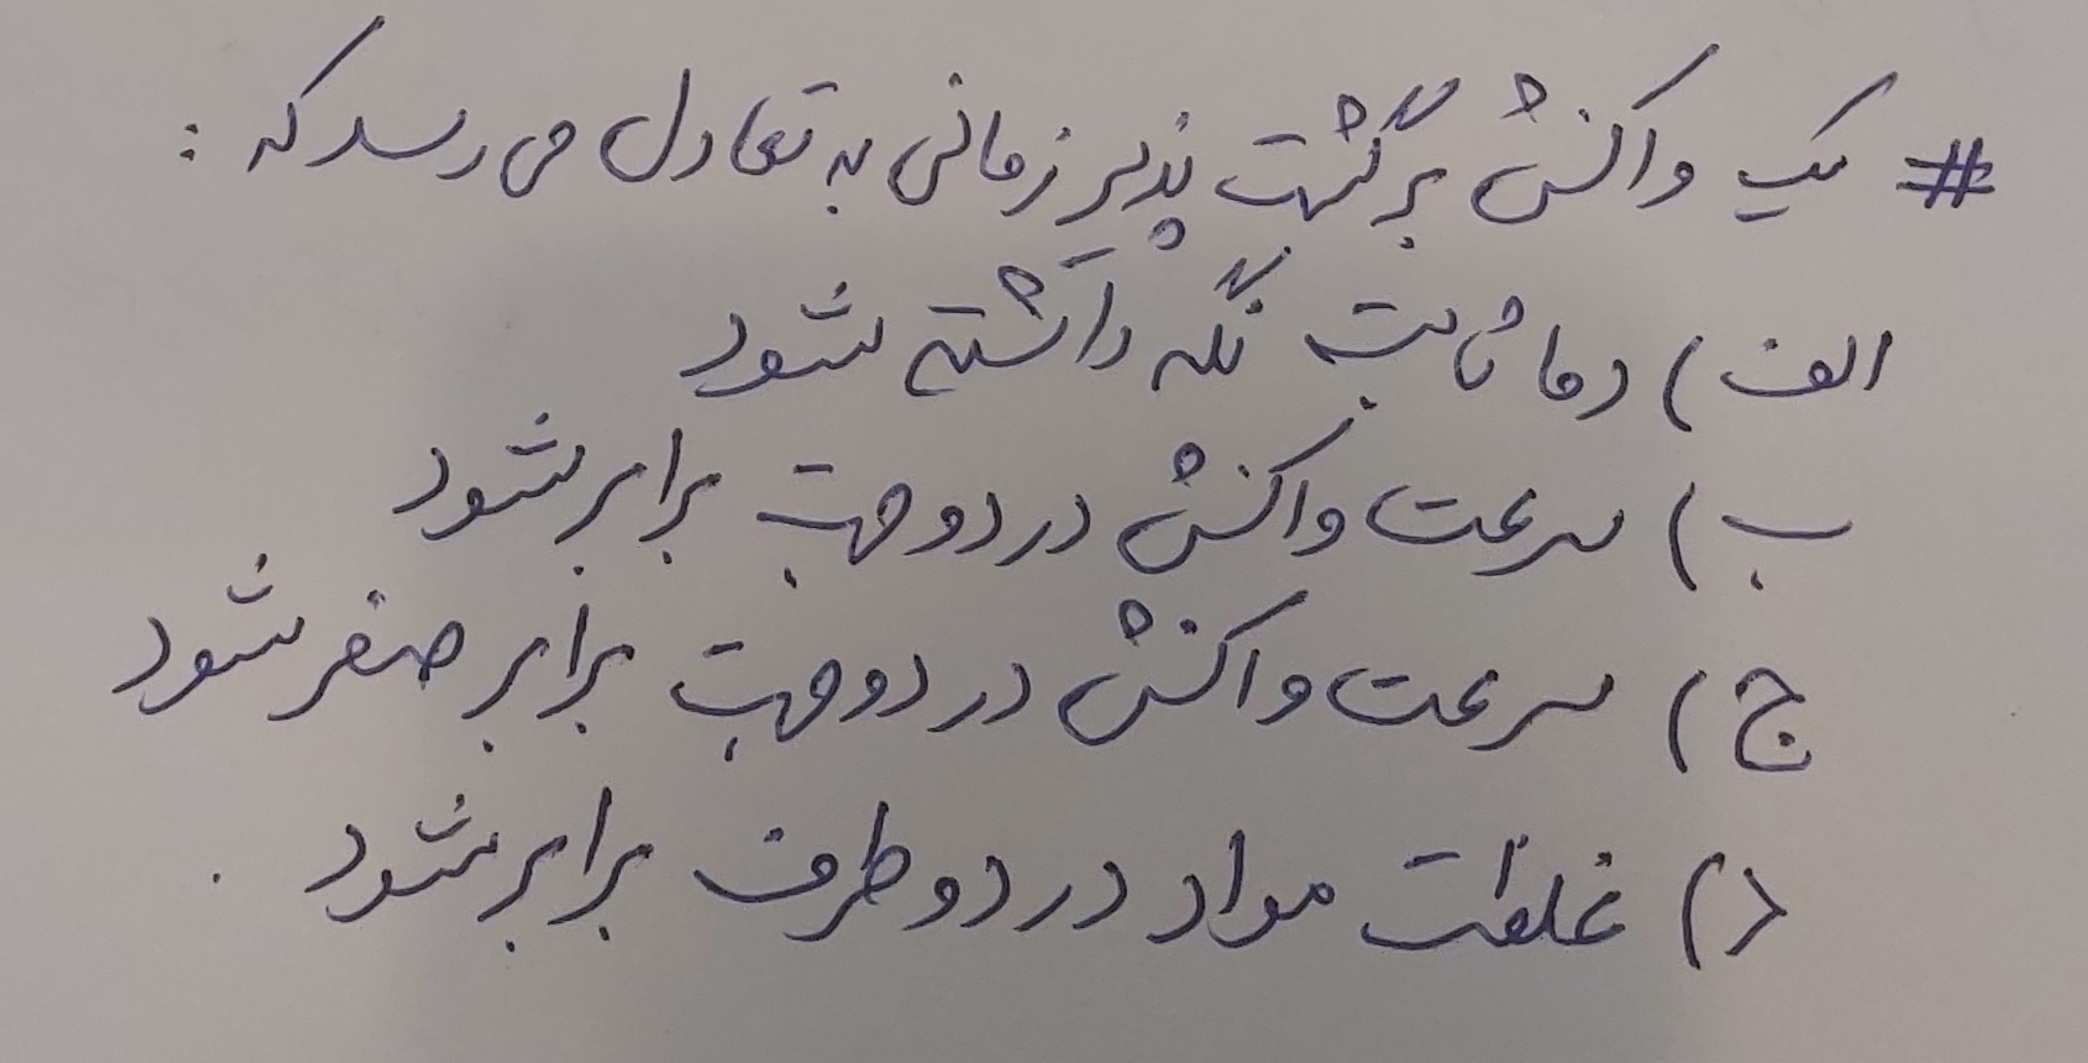 # یک واکنش برگشت پذیر زمانی به تعادل می رسد که :
الف) دما ثابت نگه داشته شود
ب) سرعت واکنش در دو جهت برابر شود
ج) سرعت واکنش در دو جهت برابر صفر شود
د) غلظت مواد در دو طرف برابر شود .